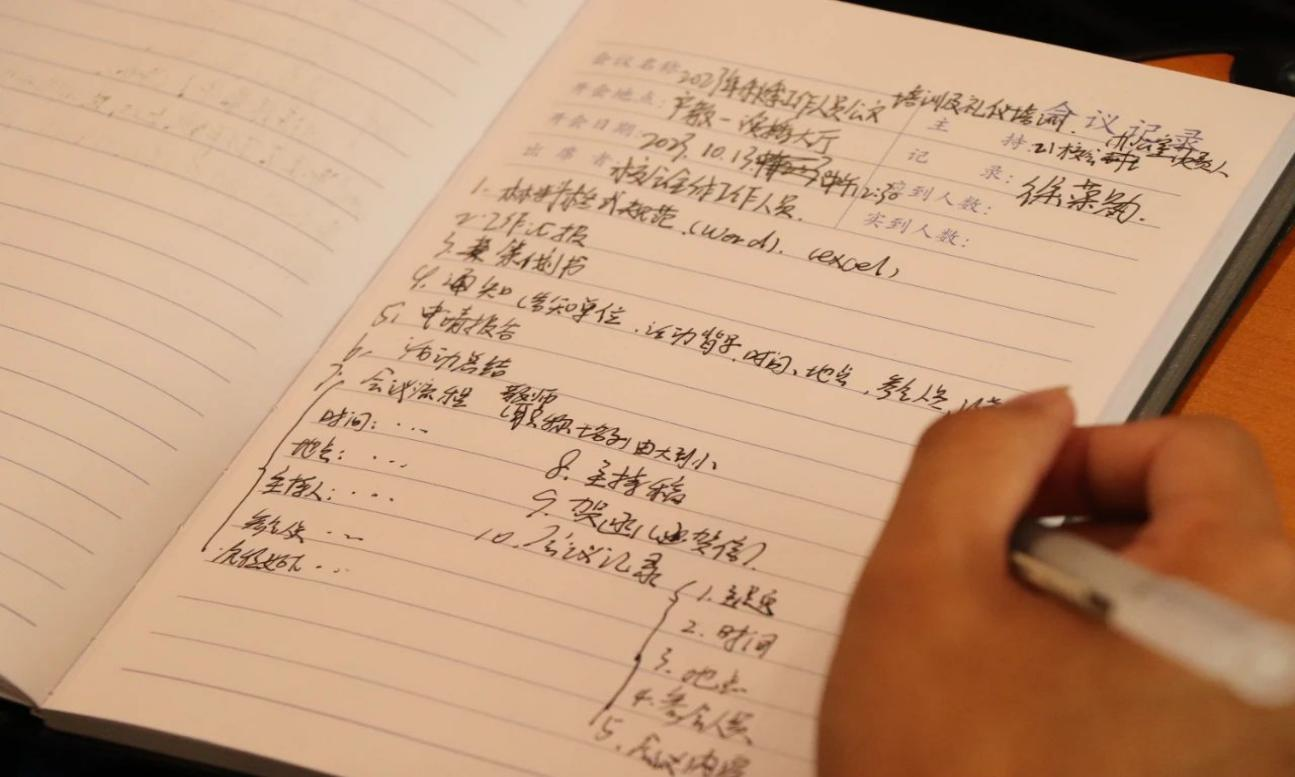 会议记录
会议名称: 2023年 工作人员公文 培训及礼仪培训
开会地点: 一 大厅 主 持: 21校
开会日期: 2023.10.13 2:30 记 录: 徐
出席者: 工作人员 应到人数:
实到人数:
1. 格式规范 (word)、(excel)
2. 工作汇报
3. 策划书
4. 通知 (告知单位、活动背景、时间、地点、参会人员、
5. 申请报告
6. 活动总结
7. 会议流程 教师
(职称 排列由大到小
时间: ...
地点: ...
主持人: ...
参会人员 ...
流程如下 ...
8. 主持稿
9. 贺函(贺信)
10. 会议记录
1. 主题
2. 时间
3. 地点
4. 参会人员
5. 会议内容